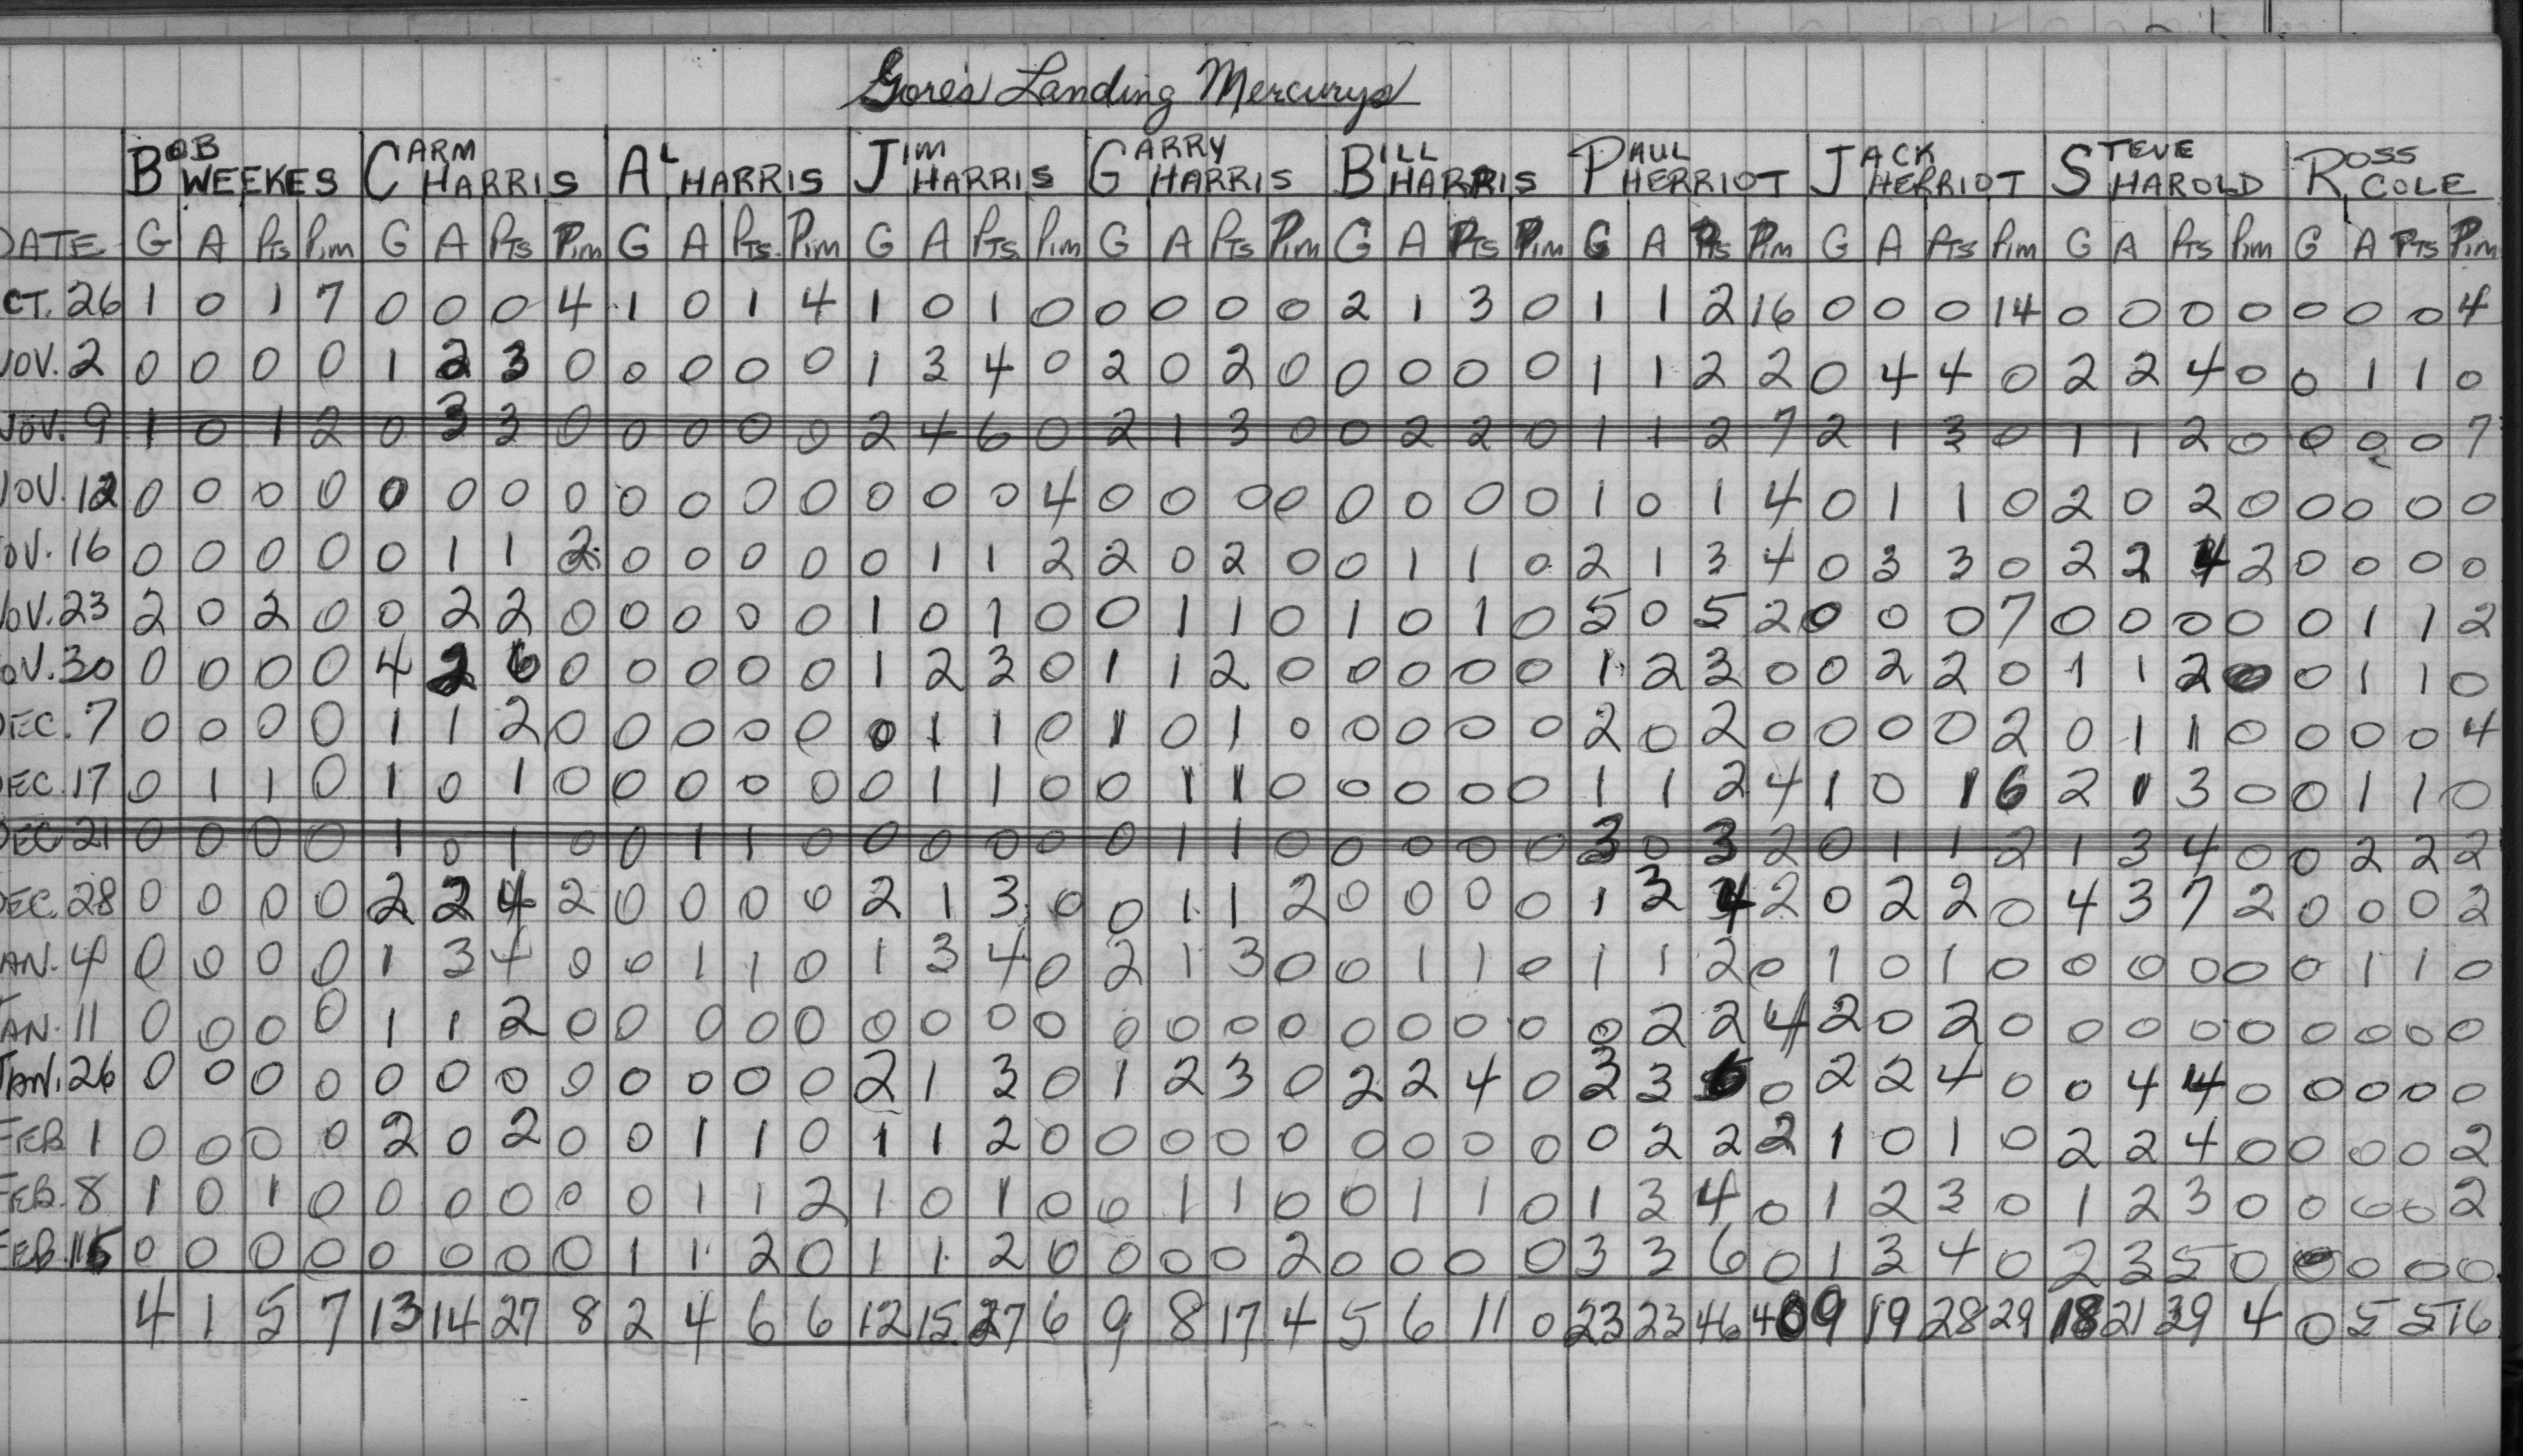 Gore's Landing Mercurys
BOB WEEKES CARM HARRIS AL HARRIS JIM HARRIS GARRY HARRIS BILL HARRIS PAUL HERRIOT JACK HERRIOT STEVE HAROLD ROSS COLE
DATE G A Pts Pim G A Pts Pim G A Pts. Pim G A Pts Pim G A Pts Pim G A Pts Pim G A Pts Pim G A Pts Pim G A Pts Pim G A Pts Pim
CT. 26 1 0 1 7 0 0 0 4 1 0 1 4 1 0 1 0 0 0 0 0 2 1 3 0 1 1 2 16 0 0 0 14 0 0 0 0 0 0 0 4
NOV. 2 0 0 0 0 1 2 3 0 0 0 0 0 1 3 4 0 2 0 2 0 0 0 0 0 1 1 2 2 0 4 4 0 2 2 4 0 0 1 1 0
NOV. 9 1 0 1 2 0 3 3 0 0 0 0 0 2 4 6 0 2 1 3 0 0 2 2 0 1 1 2 7 2 1 3 0 1 1 2 0 0 0 0 7
NOV. 12 0 0 0 0 0 0 0 0 0 0 0 0 0 0 0 4 0 0 0 0 0 0 0 0 1 0 1 4 0 1 1 0 2 0 2 0 0 0 0 0
OV. 16 0 0 0 0 0 1 1 2 0 0 0 0 0 1 1 2 2 0 2 0 0 1 1 0 2 1 3 4 0 3 3 0 2 2 4 2 0 0 0 0
OV. 23 2 0 2 0 0 2 2 0 0 0 0 0 1 0 1 0 0 1 1 0 1 0 1 0 5 0 5 2 0 0 0 7 0 0 0 0 0 1 1 2
OV. 30 0 0 0 0 4 2 6 0 0 0 0 0 1 2 3 0 1 1 2 0 0 0 0 0 1 2 3 0 0 2 2 0 1 1 2 0 0 1 1 0
DEC. 7 0 0 0 0 1 1 2 0 0 0 0 0 0 1 1 0 1 0 1 0 0 0 0 0 2 0 2 0 0 0 0 2 0 1 1 0 0 0 0 4
DEC. 17 0 1 1 0 1 0 1 0 0 0 0 0 0 1 1 0 0 1 1 0 0 0 0 0 1 1 2 4 1 0 1 6 2 1 3 0 0 1 1 0
DEC 21 0 0 0 0 1 0 1 0 0 1 1 0 0 0 0 0 0 1 1 0 0 0 0 0 3 0 3 2 0 1 1 2 1 3 4 0 0 2 2 2
DEC. 28 0 0 0 0 2 2 4 2 0 0 0 0 2 1 3 0 0 1 1 2 0 0 0 0 1 3 4 2 0 2 2 0 4 3 7 2 0 0 0 2
AN. 4 0 0 0 0 1 3 4 0 0 1 1 0 1 3 4 0 2 1 3 0 0 1 1 0 1 1 2 0 1 0 1 0 0 0 0 0 0 1 1 0
JAN. 11 0 0 0 0 1 1 2 0 0 0 0 0 0 0 0 0 0 0 0 0 0 0 0 0 0 2 2 4 2 0 2 0 0 0 0 0 0 0 0 0
JAN. 26 0 0 0 0 0 0 0 0 0 0 0 0 2 1 3 0 1 2 3 0 2 2 4 0 3 3 6 0 2 2 4 0 0 4 4 0 0 0 0 0
FEB 1 0 0 0 0 2 0 2 0 0 1 1 0 1 1 2 0 0 0 0 0 0 0 0 0 0 2 2 2 1 0 1 0 2 2 4 0 0 0 0 2
FEB. 8 1 0 1 0 0 0 0 0 0 1 1 2 1 0 1 0 0 1 1 0 0 1 1 0 1 3 4 0 1 2 3 0 1 2 3 0 0 0 0 2
FEB. 15 0 0 0 0 0 0 0 0 1 1 2 0 1 1 2 0 0 0 0 2 0 0 0 0 3 3 6 0 1 3 4 0 2 3 5 0 0 0 0 0
4 1 5 7 13 14 27 8 2 4 6 6 12 15 27 6 9 8 17 4 5 6 11 0 23 23 46 40 9 19 28 29 18 21 39 4 0 5 5 16